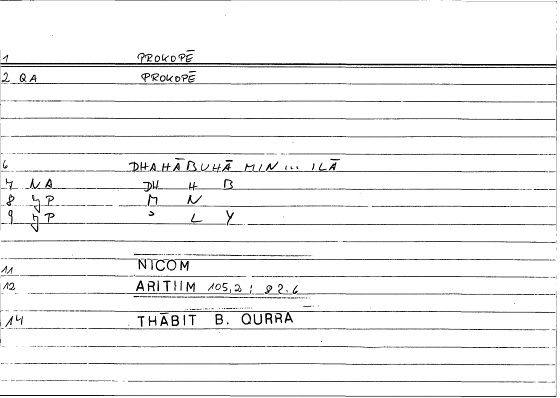 1 PROKOPĒ
2 QA PROKOPĒ
6 DHAHĀBUHĀ MIN ... ILĀ
7 NA DH H B
8 yP M N
9 yP ʾ L Y
11 NICOM
12 ARITIIM 105,2 ; 82.6
14 THĀBIT B. QURRA